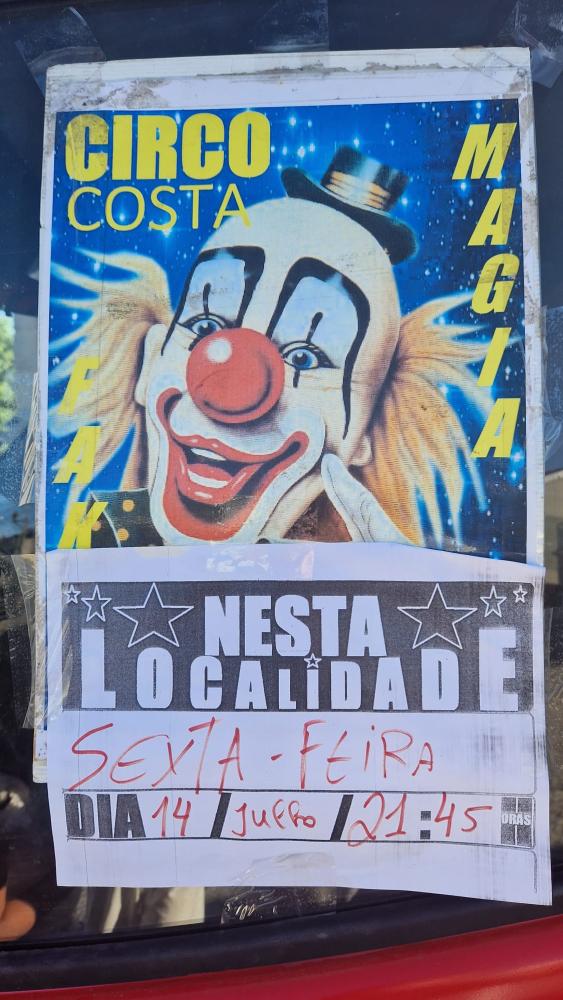 CIRCO
COSTA
MAGIA
FAK
NESTA
LOCALIDADE
SEXTA-FEIRA
DIA 14 / Julho / 21:45 HORAS